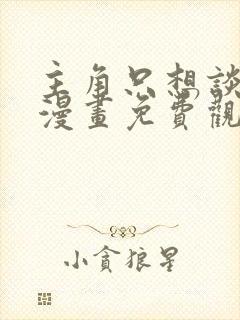 主角只想談
漫畫免費觀
小貪狼星